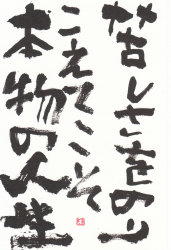 苦しさをのり
こえてこそ
本物の人生